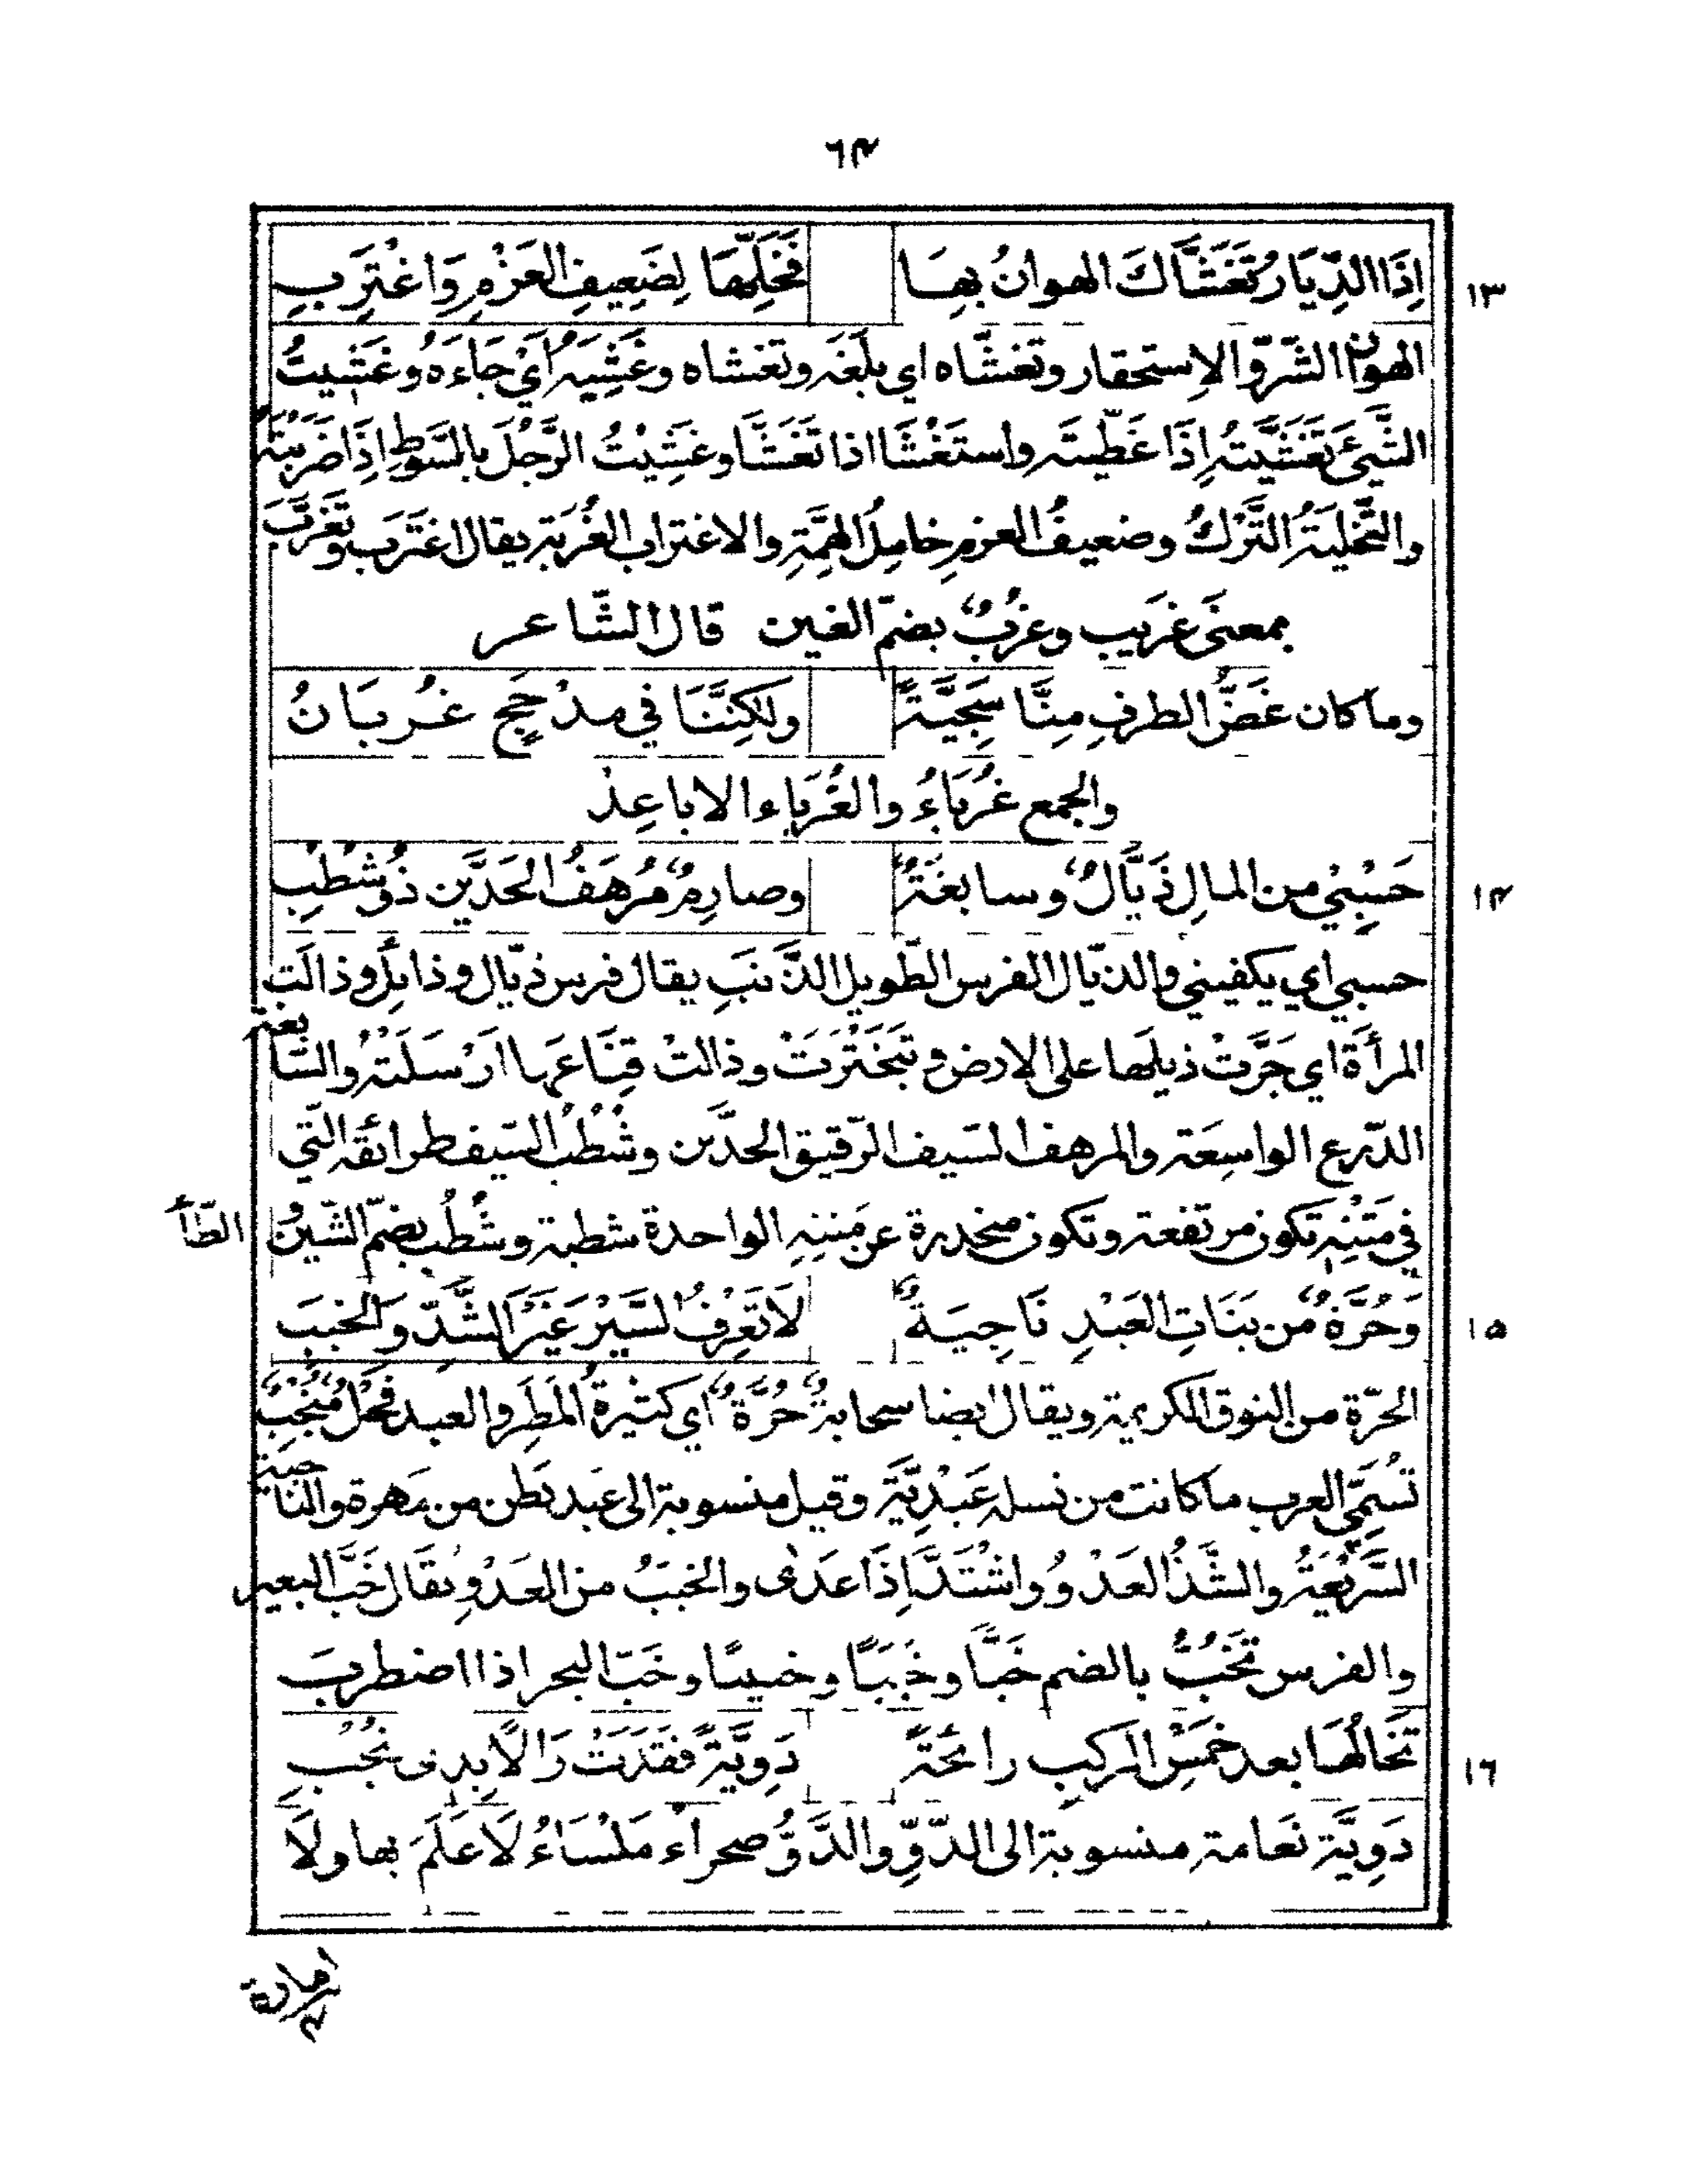 ٦٤
١٣ إِذَا الدِّيَارُ تَغَشَّاكَ الهوانُ بِهَا فَخَلِّهَا لِضَعِيفِ العَزْمِ وَاغْتَرِبِ
الهوان الشّرّ والاستحقار وتَغَشَّاه اي بلَغَه وتغشاه وغَشِيَه أَيْ جَاءَهُ وغَشِيتُ
الشَّيْئَ تَغَشَّيتُه إِذَا غَطّيته واستَغْشَا اذا تَغَشَّا وغَشِيْتُ الرَّجُلَ بالسَّوطِ إِذَا ضَرَبْتَهُ
والتَّخْلِيَةُ التَّرْكُ وضعيفُ العزمِ خامِلُ الهِمَّةِ والاغتراب الغُربَة يقال اغتَرَب وتَغَرَّبَ
بمعنَى غَرِيب وغُرُبٌ بضمّ الغين قال الشّاعر
وما كان غَضُّ الطرفِ مِنَّا سَجِيَّةً ولٰكِنَّنَا في مذْحَجٍ غُربَانُ
والجمع غُرَبَاءُ والغُرَبَاء الاباعِد
١٤ حَسْبِيْ من المالِ ذَيَّالٌ وسابغَةٌ وصارِمٌ مُرْهَفُ الحَدَّيْنِ ذُو شُطَبِ
حسبي اي يكفيني والذيّال الفرس الطّويل الذَّنَبِ يقال فرس ذيّال وذايل وذالَتِ
المرأَة اي جَرَّتْ ذيلَها على الارض وتَبَخْتَرَتْ وذالتْ قِنَاعَها ارْسَلَتْهُ والسَّابغة
الدّرع الواسِعَة والمرهف السّيف الرّقيق الحدَّين وشُطُبُ السّيف طرائقه الّتي
في مَتْنِه تكون مرتفعة وتكون منحدرة عن متنِهِ الواحدة شطبة وشُطُب بضمّ الشّين و الطّاء
١٥ وَحُرَّةٌ من بَنَاتِ العَبْدِ نَاجِيَةٌ لَا تَعْرِفُ السَّيْرَ غَيْرَ الشَّدِّ وَالخَبَبِ
الحرّة من النوق الكريمة ويقال ايضا سحابةٌ حُرَّةٌ اي كثيرةُ المَطَر والعبد فحْلٌ مُنْجِبٌ
تُسَمِّي العرب ما كانت من نسله عَبْدِيَّة وقيل منسوبة الى عَبد بَطن من مَهرة والناجية
السَّرِيْعَةُ والشَّدُّ العَدْوُ واشْتَدَّ إِذَا عَدٰى والخبَبُ من العَدْوِ يُقَال خَبَّ البعير
والفرس تَخُبُّ بالضم خَبًّا وخَبَبًا وخبيبًا وخَبّ البحر اذا اضطرب
١٦ تَخَالُهَا بعد خَمْسِ المركب رائحَةً دَوِيَّةً فقَدَتْ رَالًا بِدى نجُبِ
دَوِيَّة نَعَامة منسوبة الى الدّوِّ والدَّوُّ صحراء مَلْسَاءُ لَا عَلَمَ بها ولَا
امارة